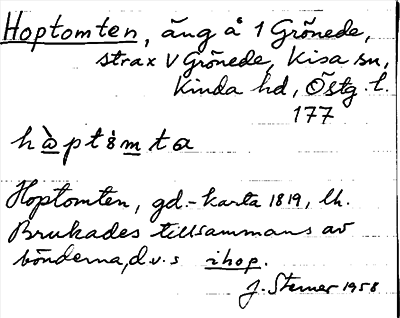 Hoptomten, äng å 1 Grönede,
strax V Grönede, Kisa sn,
Kinda hd, Östg. l.
177
hàptȯmta
Hoptomten, gd.-karta 1819, lh.
Brukades tillsammans av
bönderna, d.v.s ihop.
J. Sterner 1958